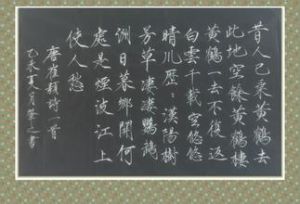 昔人已乘黄鶴去
此地空餘黄鶴樓
黄鶴一去不復返
白雲千載空悠悠
晴川歷々漢陽樹
芳草淒淒鸚鵡
洲日暮鄉關何
處是煙波江上
使人愁
唐崔顥詩一首
乙亥八月書